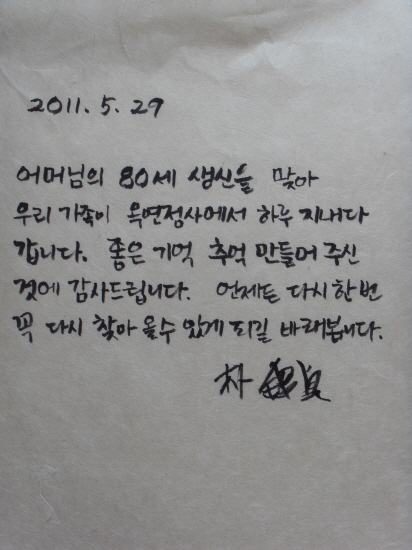 2011. 5. 29
어머님의 80세 생신을 맞아
우리 가족이 옥연정사에서 하루 지내다
갑니다. 좋은 기억 추억 만들어 주신
것에 감사드립니다. 언제든 다시 한 번
꼭 다시 찾아 올수 있게 되길 바래봅니다.
朴 貞